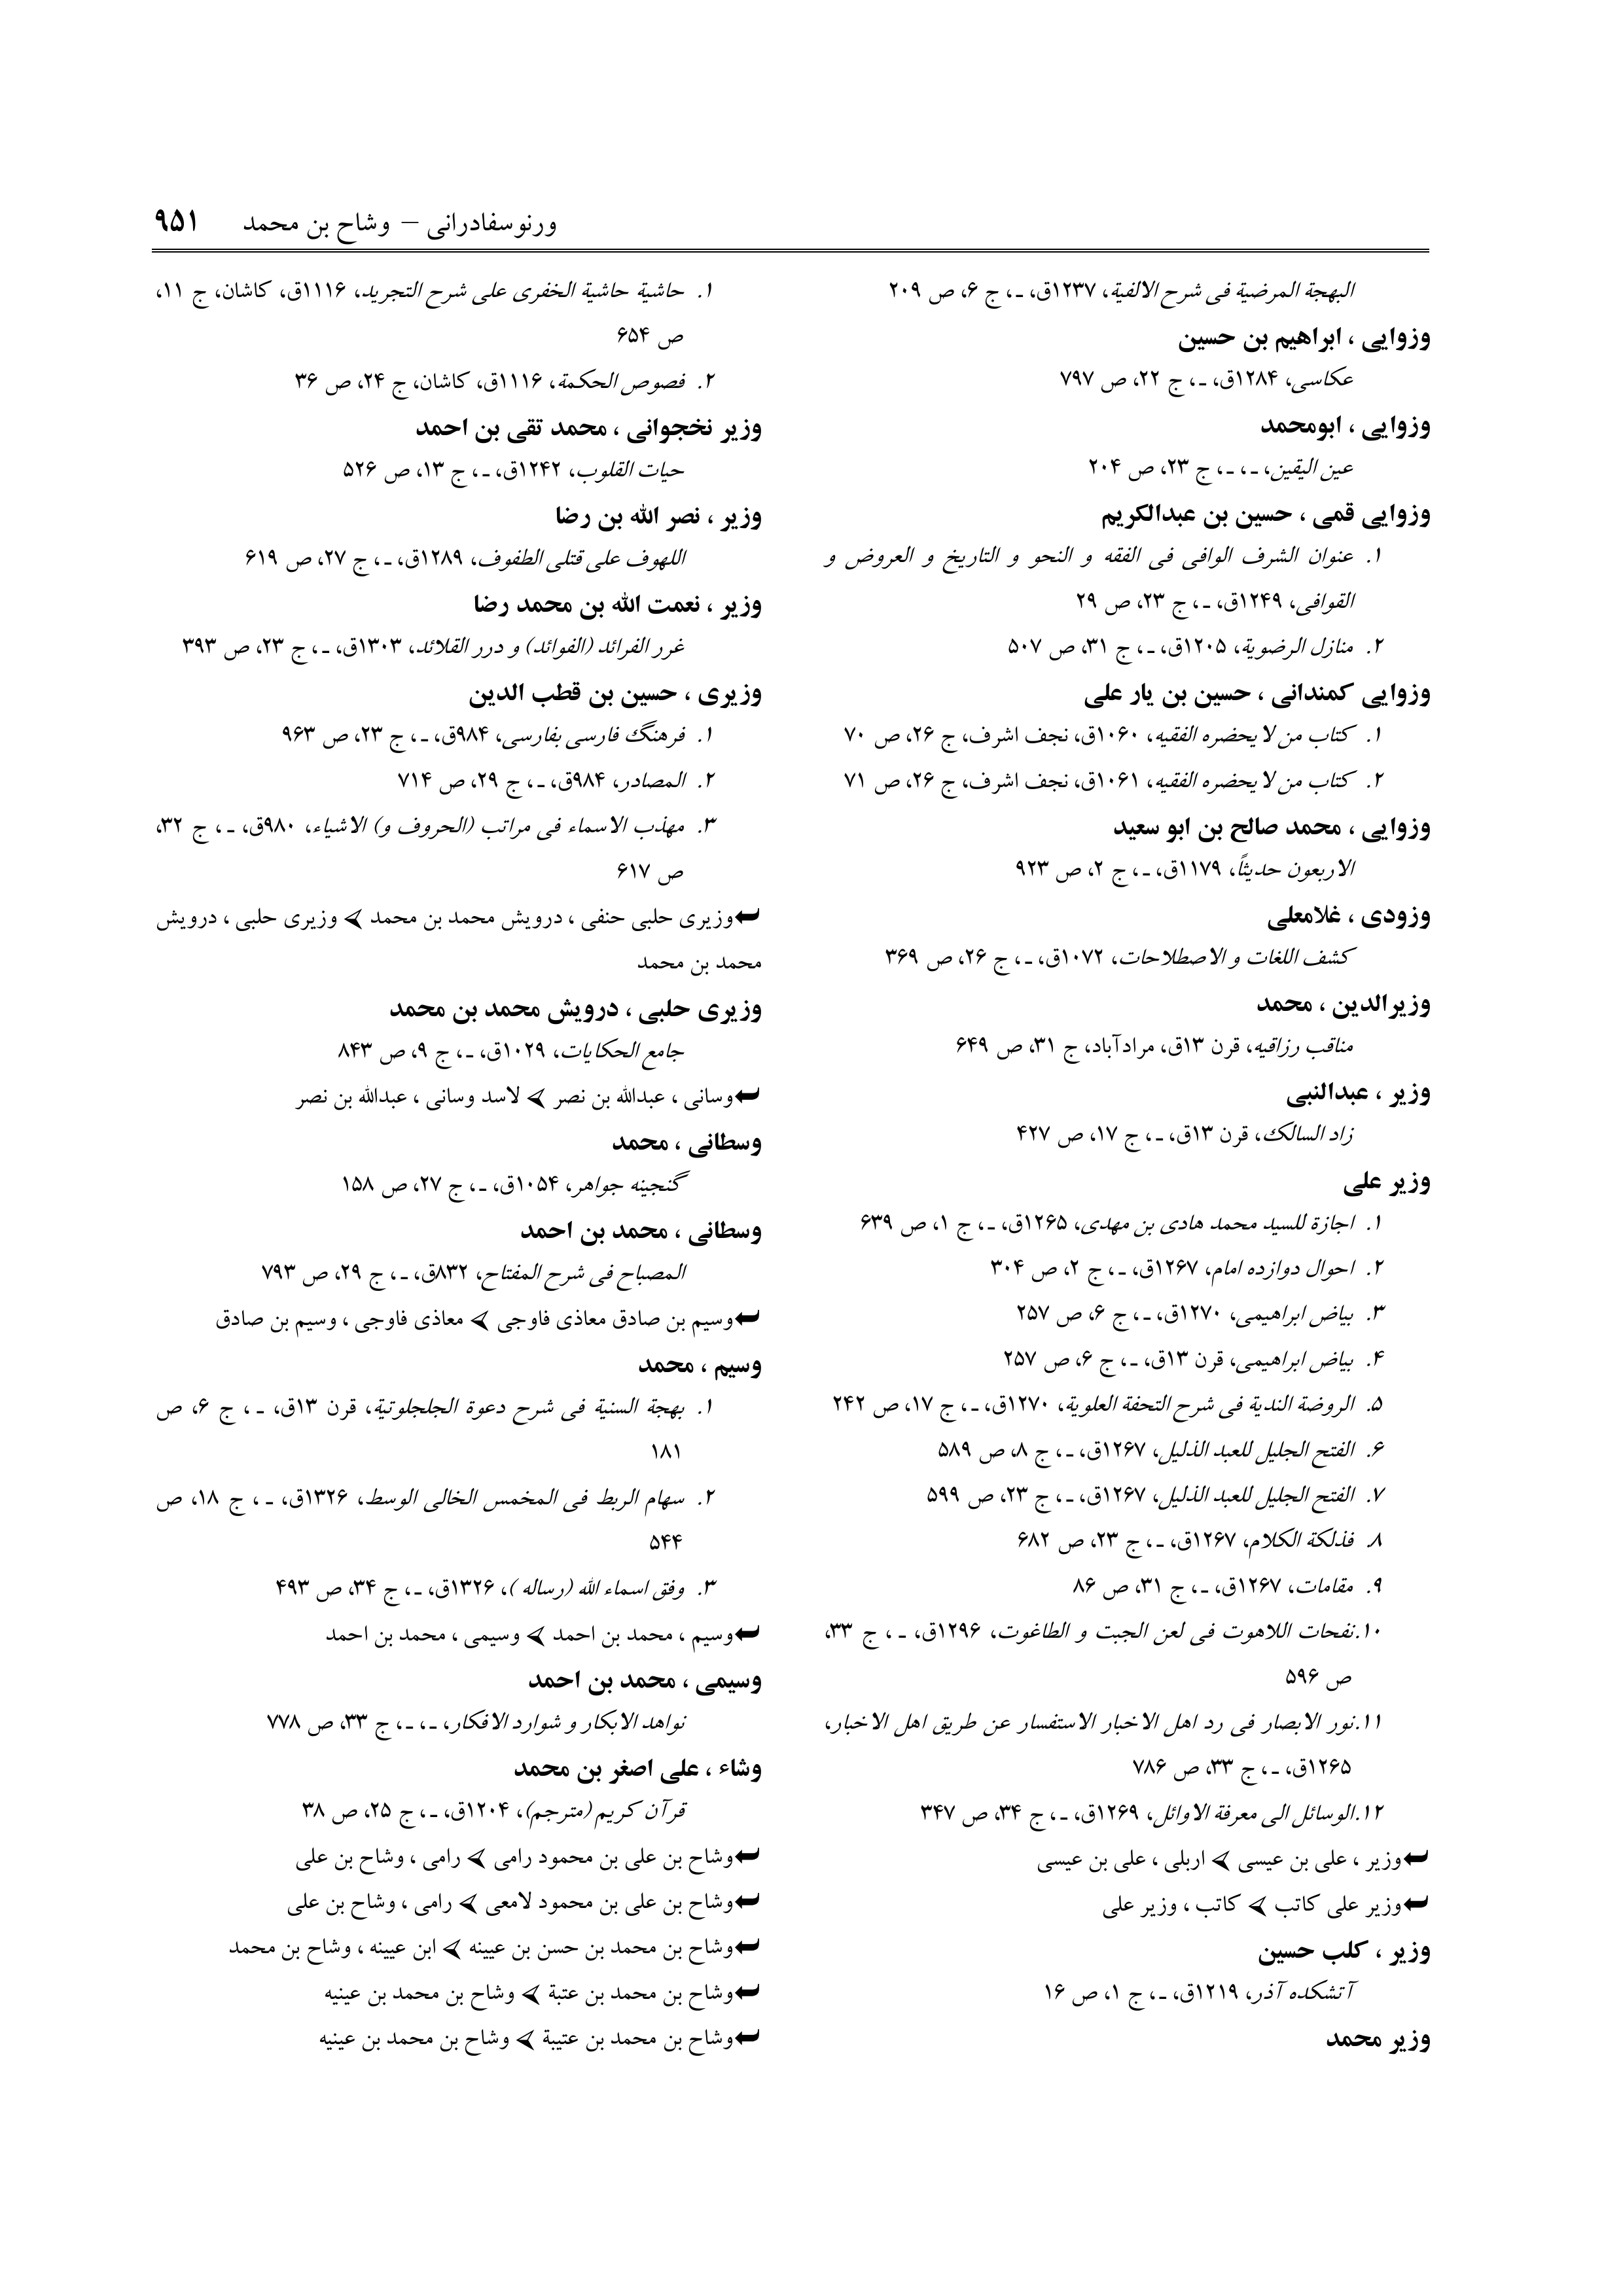 ورنوسفادرانی – وشاح بن محمد ۹۵۱
البهجة المرضیة فی شرح الالفیة، ۱۲۳۷ق، ـ، ج ۶، ص ۲۰۹
وزوایی ، ابراهیم بن حسین
عکاسی، ۱۲۸۴ق، ـ، ج ۲۲، ص ۷۹۷
وزوایی ، ابومحمد
عین الیقین، ـ، ـ، ج ۲۳، ص ۲۰۴
وزوایی قمی ، حسین بن عبدالکریم
۱. عنوان الشرف الوافی فی الفقه و النحو و التاریخ و العروض و
القوافی، ۱۲۴۹ق، ـ، ج ۲۳، ص ۲۹
۲. منازل الرضویة، ۱۲۰۵ق، ـ، ج ۳۱، ص ۵۰۷
وزوایی کمندانی ، حسین بن یار علی
۱. کتاب من لا یحضره الفقیه، ۱۰۶۰ق، نجف اشرف، ج ۲۶، ص ۷۰
۲. کتاب من لا یحضره الفقیه، ۱۰۶۱ق، نجف اشرف، ج ۲۶، ص ۷۱
وزوایی ، محمد صالح بن ابو سعید
الاربعون حدیثاً، ۱۱۷۹ق، ـ، ج ۲، ص ۹۲۳
وزودی ، غلامعلی
کشف اللغات و الاصطلاحات، ۱۰۷۲ق، ـ، ج ۲۶، ص ۳۶۹
وزیرالدین ، محمد
مناقب رزاقیه، قرن ۱۳ق، مرادآباد، ج ۳۱، ص ۶۴۹
وزیر ، عبدالنبی
زاد السالک، قرن ۱۳ق، ـ، ج ۱۷، ص ۴۲۷
وزیر علی
۱. اجازة للسید محمد هادی بن مهدی، ۱۲۶۵ق، ـ، ج ۱، ص ۶۳۹
۲. احوال دوازده امام، ۱۲۶۷ق، ـ، ج ۲، ص ۳۰۴
۳. بیاض ابراهیمی، ۱۲۷۰ق، ـ، ج ۶، ص ۲۵۷
۴. بیاض ابراهیمی، قرن ۱۳ق، ـ، ج ۶، ص ۲۵۷
۵. الروضة الندیة فی شرح التحفة العلویة، ۱۲۷۰ق، ـ، ج ۱۷، ص ۲۴۲
۶. الفتح الجلیل للعبد الذلیل، ۱۲۶۷ق، ـ، ج ۸، ص ۵۸۹
۷. الفتح الجلیل للعبد الذلیل، ۱۲۶۷ق، ـ، ج ۲۳، ص ۵۹۹
۸. فذلکة الکلام، ۱۲۶۷ق، ـ، ج ۲۳، ص ۶۸۲
۹. مقامات، ۱۲۶۷ق، ـ، ج ۳۱، ص ۸۶
۱۰.نفحات اللاهوت فی لعن الجبت و الطاغوت، ۱۲۹۶ق، ـ، ج ۳۳،
ص ۵۹۶
۱۱.نور الابصار فی رد اهل الاخبار الاستفسار عن طریق اهل الاخبار،
۱۲۶۵ق، ـ، ج ۳۳، ص ۷۸۶
۱۲.الوسائل الی معرفة الاوائل، ۱۲۶۹ق، ـ، ج ۳۴، ص ۳۴۷
وزیر ، علی بن عیسی ⮜ اربلی ، علی بن عیسی
وزیر علی کاتب ⮜ کاتب ، وزیر علی
وزیر ، کلب حسین
آتشکده آذر، ۱۲۱۹ق، ـ، ج ۱، ص ۱۶
وزیر محمد
۱. حاشیة حاشیة الخفری علی شرح التجرید، ۱۱۱۶ق، کاشان، ج ۱۱،
ص ۶۵۴
۲. فصوص الحکمة، ۱۱۱۶ق، کاشان، ج ۲۴، ص ۳۶
وزیر نخجوانی ، محمد تقی بن احمد
حیات القلوب، ۱۲۴۲ق، ـ، ج ۱۳، ص ۵۲۶
وزیر ، نصر الله بن رضا
اللهوف علی قتلی الطفوف، ۱۲۸۹ق، ـ، ج ۲۷، ص ۶۱۹
وزیر ، نعمت الله بن محمد رضا
غرر الفرائد (الفوائد) و درر القلائد، ۱۳۰۳ق، ـ، ج ۲۳، ص ۳۹۳
وزیری ، حسین بن قطب الدین
۱. فرهنگ فارسی بفارسی، ۹۸۴ق، ـ، ج ۲۳، ص ۹۶۳
۲. المصادر، ۹۸۴ق، ـ، ج ۲۹، ص ۷۱۴
۳. مهذب الاسماء فی مراتب (الحروف و) الاشیاء، ۹۸۰ق، ـ، ج ۳۲،
ص ۶۱۷
وزیری حلبی حنفی ، درویش محمد بن محمد ⮜ وزیری حلبی ، درویش
محمد بن محمد
وزیری حلبی ، درویش محمد بن محمد
جامع الحکایات، ۱۰۲۹ق، ـ، ج ۹، ص ۸۴۳
وسانی ، عبدالله بن نصر ⮜ لاسد وسانی ، عبدالله بن نصر
وسطانی ، محمد
گنجینه جواهر، ۱۰۵۴ق، ـ، ج ۲۷، ص ۱۵۸
وسطانی ، محمد بن احمد
المصباح فی شرح المفتاح، ۸۳۲ق، ـ، ج ۲۹، ص ۷۹۳
وسیم بن صادق معاذی فاوجی ⮜ معاذی فاوجی ، وسیم بن صادق
وسیم ، محمد
۱. بهجة السنیة فی شرح دعوة الجلجلوتیة، قرن ۱۳ق، ـ، ج ۶، ص
۱۸۱
۲. سهام الربط فی المخمس الخالی الوسط، ۱۳۲۶ق، ـ، ج ۱۸، ص
۵۴۴
۳. وفق اسماء الله (رساله )، ۱۳۲۶ق، ـ، ج ۳۴، ص ۴۹۳
وسیم ، محمد بن احمد ⮜ وسیمی ، محمد بن احمد
وسیمی ، محمد بن احمد
نواهد الابکار و شوارد الافکار، ـ، ـ، ج ۳۳، ص ۷۷۸
وشاء ، علی اصغر بن محمد
قرآن کریم (مترجم)، ۱۲۰۴ق، ـ، ج ۲۵، ص ۳۸
وشاح بن علی بن محمود رامی ⮜ رامی ، وشاح بن علی
وشاح بن علی بن محمود لامعی ⮜ رامی ، وشاح بن علی
وشاح بن محمد بن حسن بن عیینه ⮜ ابن عیینه ، وشاح بن محمد
وشاح بن محمد بن عتبة ⮜ وشاح بن محمد بن عینیه
وشاح بن محمد بن عتیبة ⮜ وشاح بن محمد بن عینیه